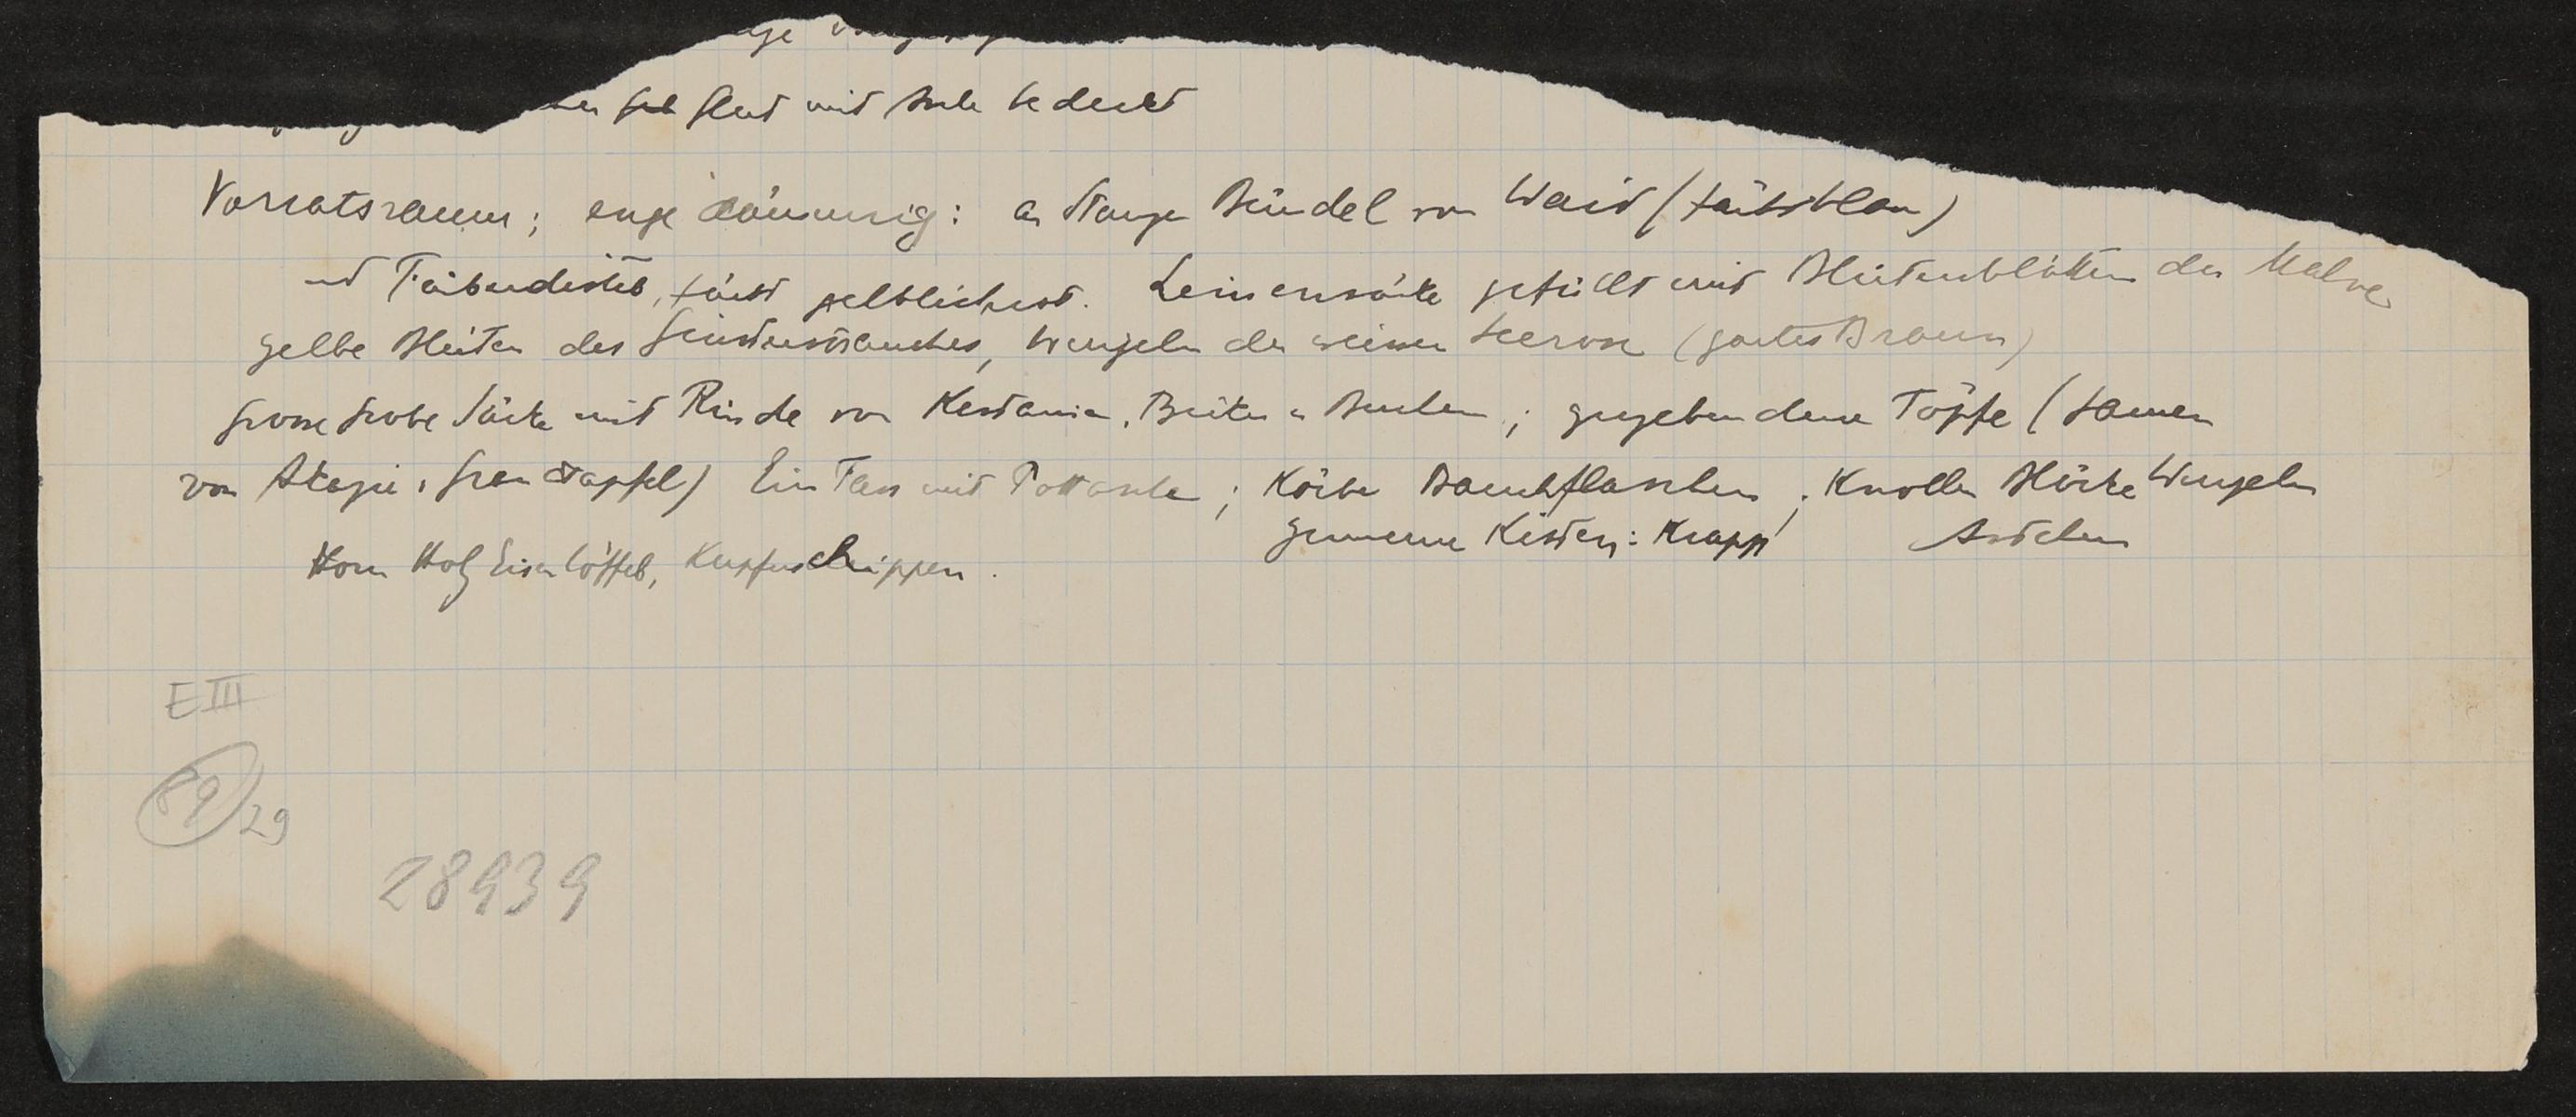 mit bedeckt
Vorratsraum; enge dämmrig: an Stange Bündel von Waid (färbtblau)
und Färberdistel, färbt gelblichrot. Leinensäcke gefüllt mit Blütenblättern der Malve
gelbe Blüten des Ginsterstrauches, Wurzeln der weissen Seerose (gortes Braun)
grosse grobe Säcke mit Rinde von Kastanien, Birken u Buchen; Töpfe (Samen
von Akazie, Granatapfel) Ein Fass mit Pottasche; Körbe Bauchflaschen; Knollen Blöcke Wurzeln
Kisten: Krapp Ästchen
Horn Holz Eisenlöffel, Kupferschippen.
E III
89/29
28939